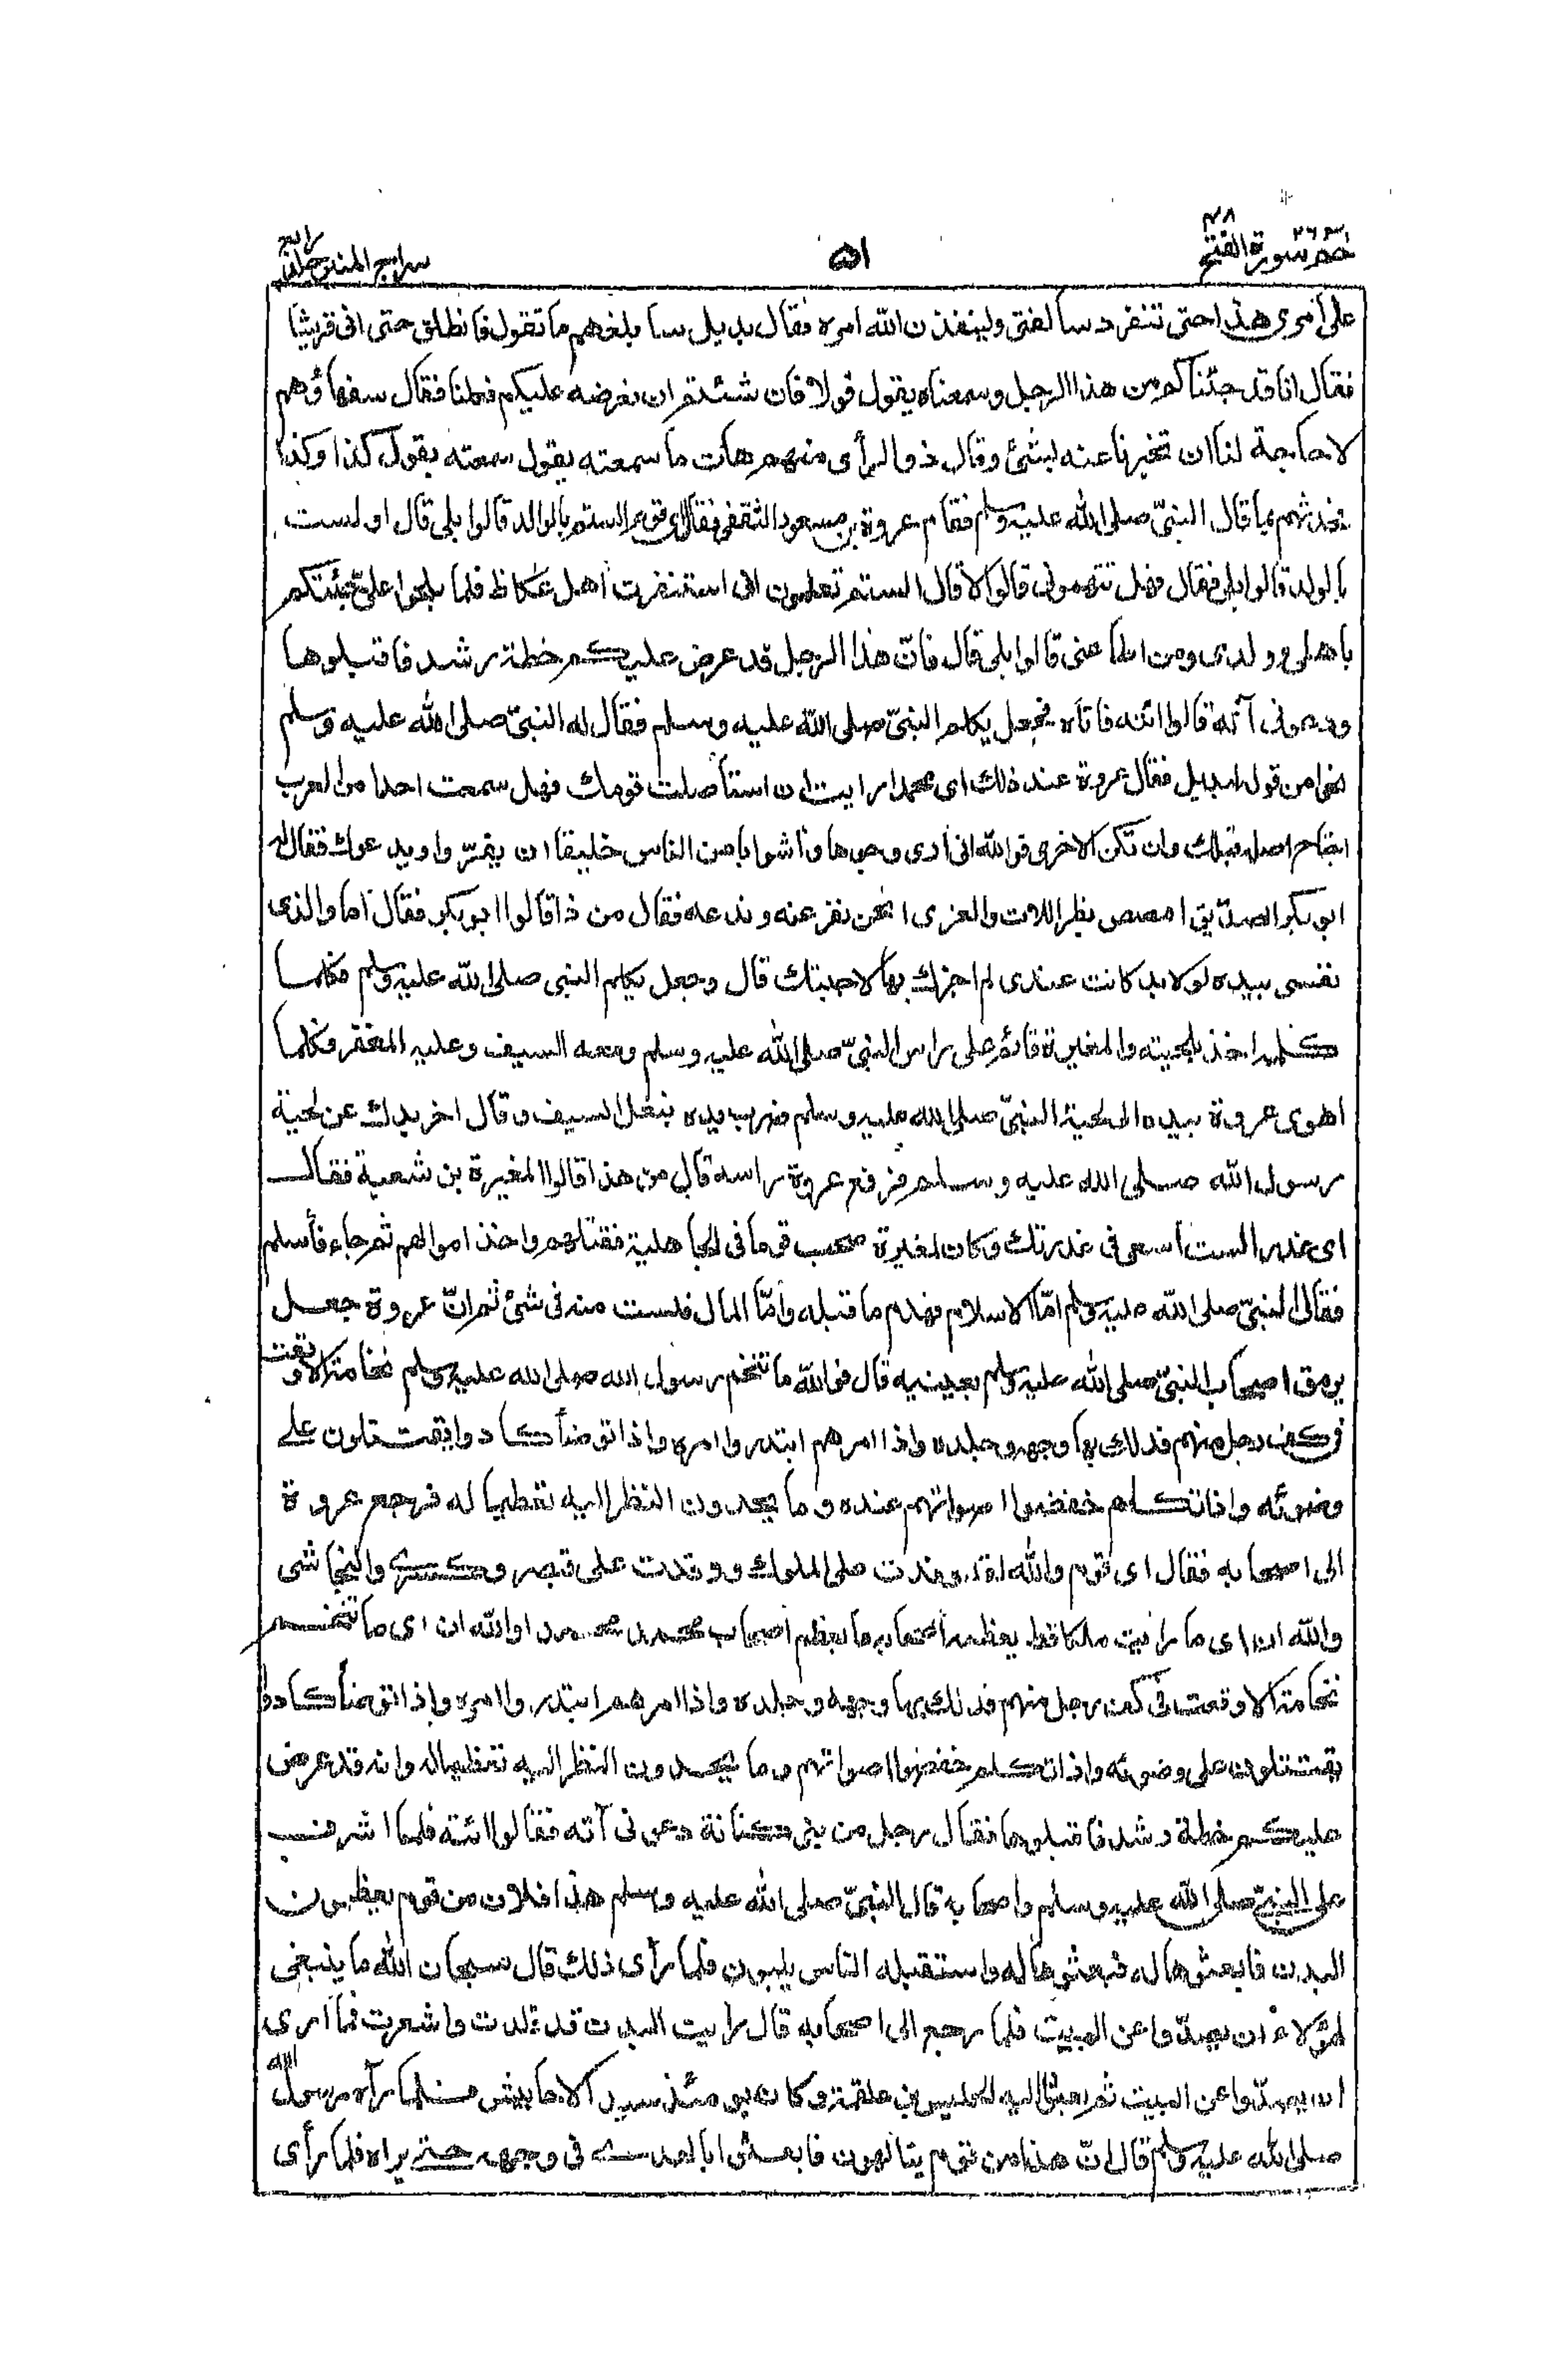 حم ٢٦ سورة الفتح ٤٨
٥١
سراج المنير جلد رابع
على أمرى هذا حتى تنفرد سالفتى ولينفذن الله امره فقال بديل سابلغهم ما تقول فانطلق حتى اتى قريشا
فقال انا قد جئناكم من هذا الرجل وسمعناه يقول قولا فان شئتم ان نعرضه عليكم فعلنا فقال سفهاؤهم
لا حاجة لنا ان تخبرنا عنه بشئ وقال ذو الرأى منهم هات ما سمعته يقول سمعته يقول كذا وكذا
فحدثهم بما قال النبىّ صلى الله عليه وسلم فقام عروة بن مسعود الثقفى فقال اى قوم الستم بالوالد قالوا بلى قال اولست
بالولد قالوا بلى فقال فهل تتهمونى قالوا لا قال الستم تعلمون انى استنفرت اهل عكاظ فلما بلحوا علىّ جئتكم
باهلى وولدى ومن اطاعنى قالوا بلى قال فانّ هذا الرجل قد عرض عليكم خطة رشد فاقبلوها
ودعونى آته قالوا ائته فاتاه فجعل يكلم النبىّ صلى الله عليه وسلم فقال له النبىّ صلى الله عليه وسلم
نحوا من قوله لبديل فقال عروة عند ذلك اى محمد ارايت ان استأصلت قومك فهل سمعت احدا من العرب
اجتاح اصله قبلك وان تكن الاخرى فوالله انى أرى وجوها وأشوابا من الناس خليقا ان يفرّوا ويدعوك فقال له
ابو بكر الصدّيق امصص بظر اللات والعزى انحن نفر عنه وندعه فقال من ذا قالوا ابو بكر فقال أما والذى
نفسى بيده لولا يد كانت عندى لم اجزك بها لاجبتك قال وجعل يكلم النبى صلى الله عليه وسلم فكلما
كلمه اخذ بلحيته والمغيرة قائم على راس النبىّ صلى الله عليه وسلم ومعه السيف وعليه المغفر فكلما
اهوى عروة بيده الى لحية النبىّ صلى الله عليه وسلم ضرب يده بنعل السيف وقال اخر يدك عن لحية
رسول الله صلى الله عليه وسلم فرفع عروة راسه قال من هذا قالوا المغيرة بن شعبة فقال
اى غدر الست اسعى فى غدرتك وكان المغيرة صحب قوما فى الجاهلية فقتلهم واخذ اموالهم ثم جاء فأسلم
فقال النبىّ صلى الله عليه وسلم امّا الاسلام فهدم ما قبله وأمّا المال فلست منه فى شئ ثم انّ عروة جعل
يرمق اصحاب النبىّ صلى الله عليه وسلم بعينيه قال فوالله ما تنخم رسول الله صلى الله عليه وسلم نخامة الا وقعت
فى كف رجل منهم فدلك بها وجهه وجلده واذا امرهم ابتدروا امره واذا توضأ كادوا يقتتلون على
وضوئه واذا تكلم خفضوا اصواتهم عنده وما يحدون النظر اليه تعظيما له فرجع عروة
الى اصحابه فقال اى قوم والله لقد وفدت على الملوك ووفدت على قيصر وكسرى والنجاشى
والله ان اى ما رايت ملكا قط يعظمه أصحابه ما يعظم اصحاب محمد محمدا والله ان اى ما تنخم
نخامة الا وقعت فى كف رجل منهم فدلك بها وجهه وجلده واذا امرهم ابتدروا امره وإذا توضأ كادوا
يقتتلون على وضوئه واذا تكلم خفضوا اصواتهم وما يحدون النظر اليه تعظيما له وانه قد عرض
عليكم خطة رشد فاقبلوها فقال رجل من بنى كنانة دعونى آته فقالوا ائته فلما اشرف
على النبىّ صلى الله عليه وسلم واصحابه قال النبىّ صلى الله عليه وسلم هذا فلان من قوم يعظمون
البدن فابعثوها له فبعثوها له واستقبله الناس يلبون فلما رأى ذلك قال سبحان الله ما ينبغى
لهؤلاء أن يصدّوا عن البيت فلما رجع الى اصحابه قال رايت البدن قد قلدت واشعرت فما ارى
ان يصدّوا عن البيت ثم بعثوا اليه الحليس بن علقمة وكان يومئذ سيد الاحابيش فلما رآه رسول الله
صلى الله عليه وسلم قال انّ هذا من قوم يتالهون فابعثوا بالهدى فى وجهه حتى يراه فلما رأى